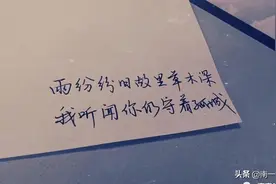 雨纷纷旧故里草木深
我听闻你仍守着孤城
头条 @南一